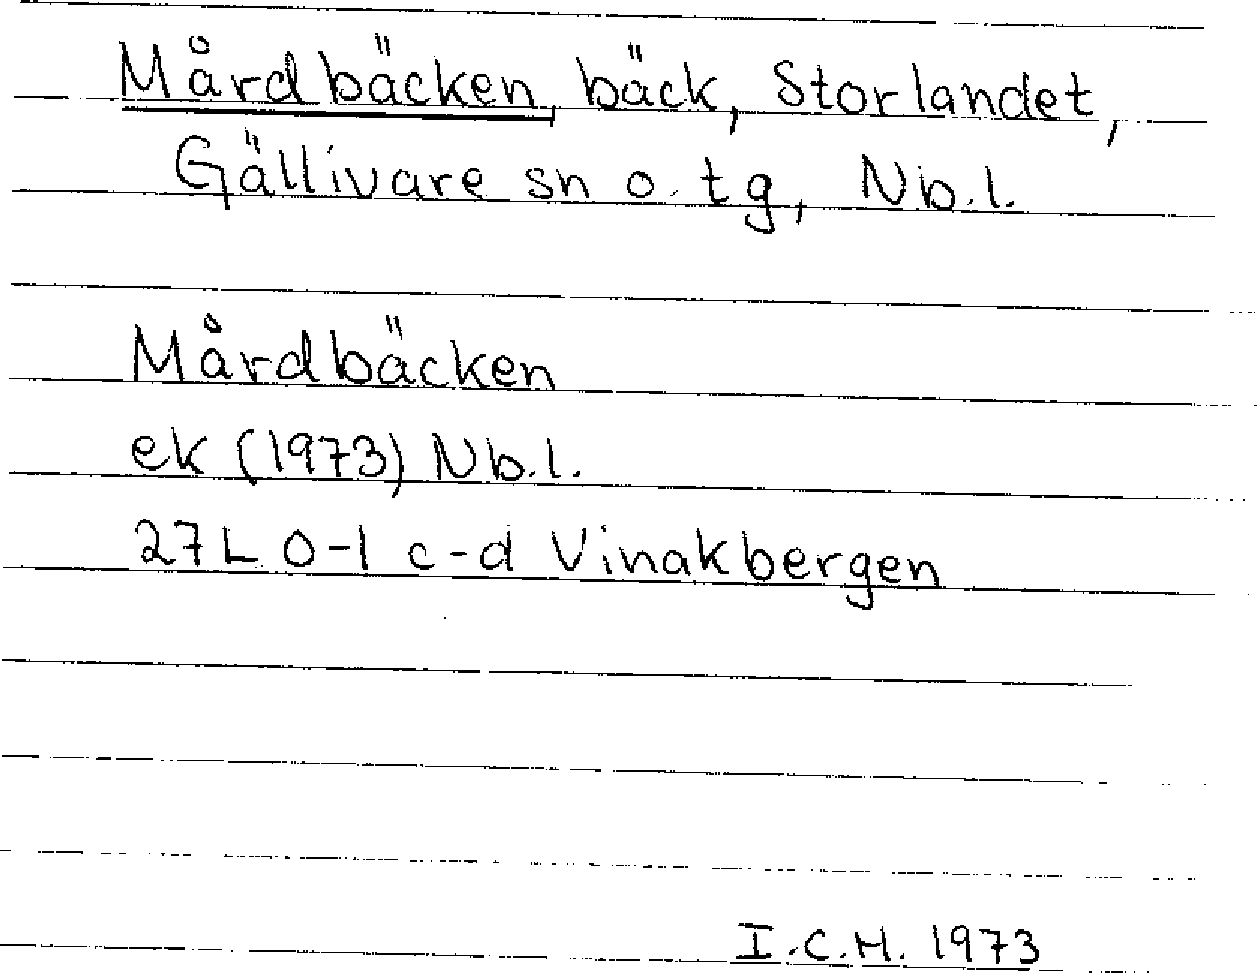 Mårdbäcken, bäck, Storlandet,
Gällivare sn o. tg, Nb.l.
Mårdbäcken
ek (1973) Nb.l.
27L 0-1 c-d Vinakbergen
I.C.H. 1973